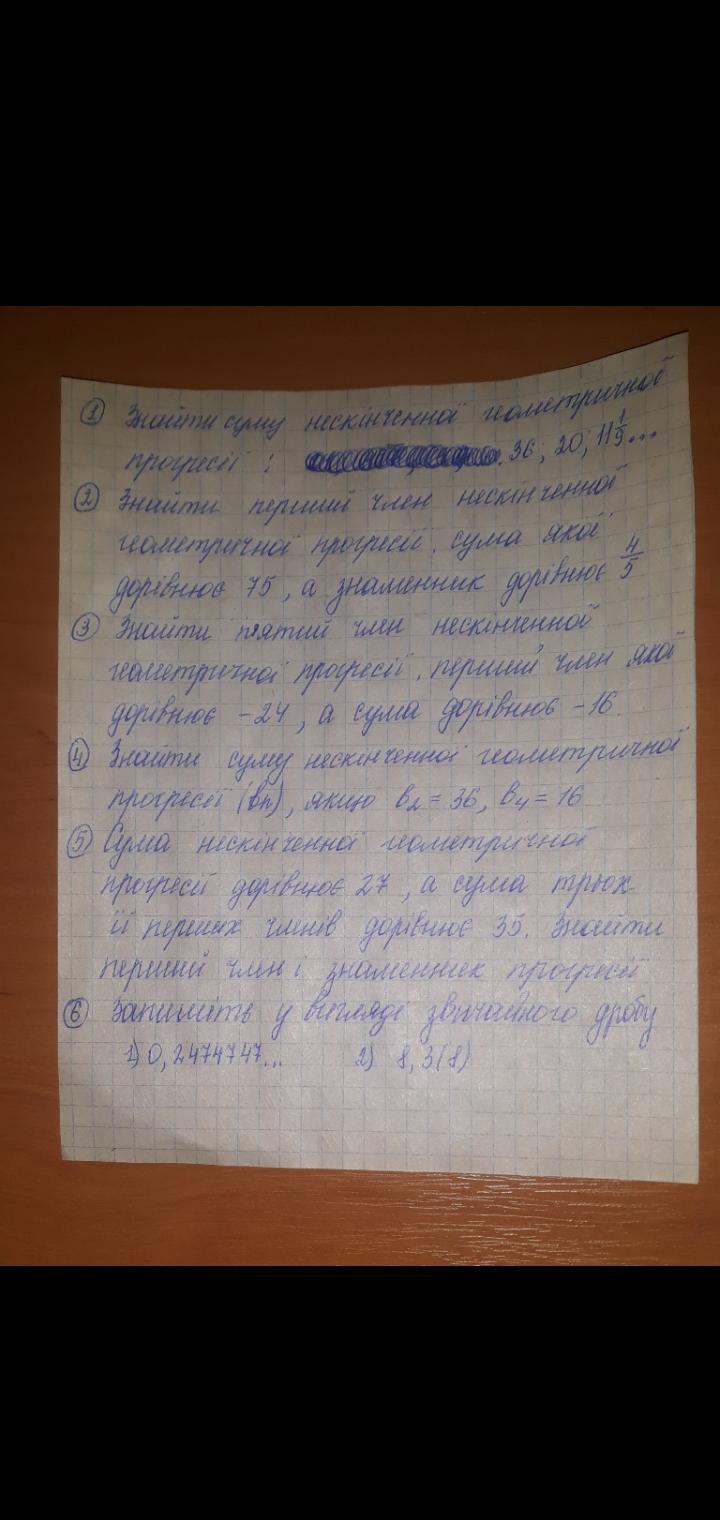 ① Знайти суму нескінченної геометричної
прогресії : 36; 20; 11 1/9...
② Знайти перший член нескінченної
геометричної прогресії, сума якої
дорівнює 75, а знаменник дорівнює 4/5
③ Знайти п'ятий член нескінченної
геометричної прогресії, перший член якої
дорівнює -24, а сума дорівнює -16.
④ Знайти суму нескінченної геометричної
прогресії (bn), якщо b₂ = 36, b₄ = 16
⑤ Сума нескінченної геометричної
прогресії дорівнює 27, а сума трьох
її перших членів дорівнює 35. Знайти
перший член і знаменник прогресії
⑥ Запишіть у вигляді звичайного дробу
1) 0,2474747... 2) 8,3(8)